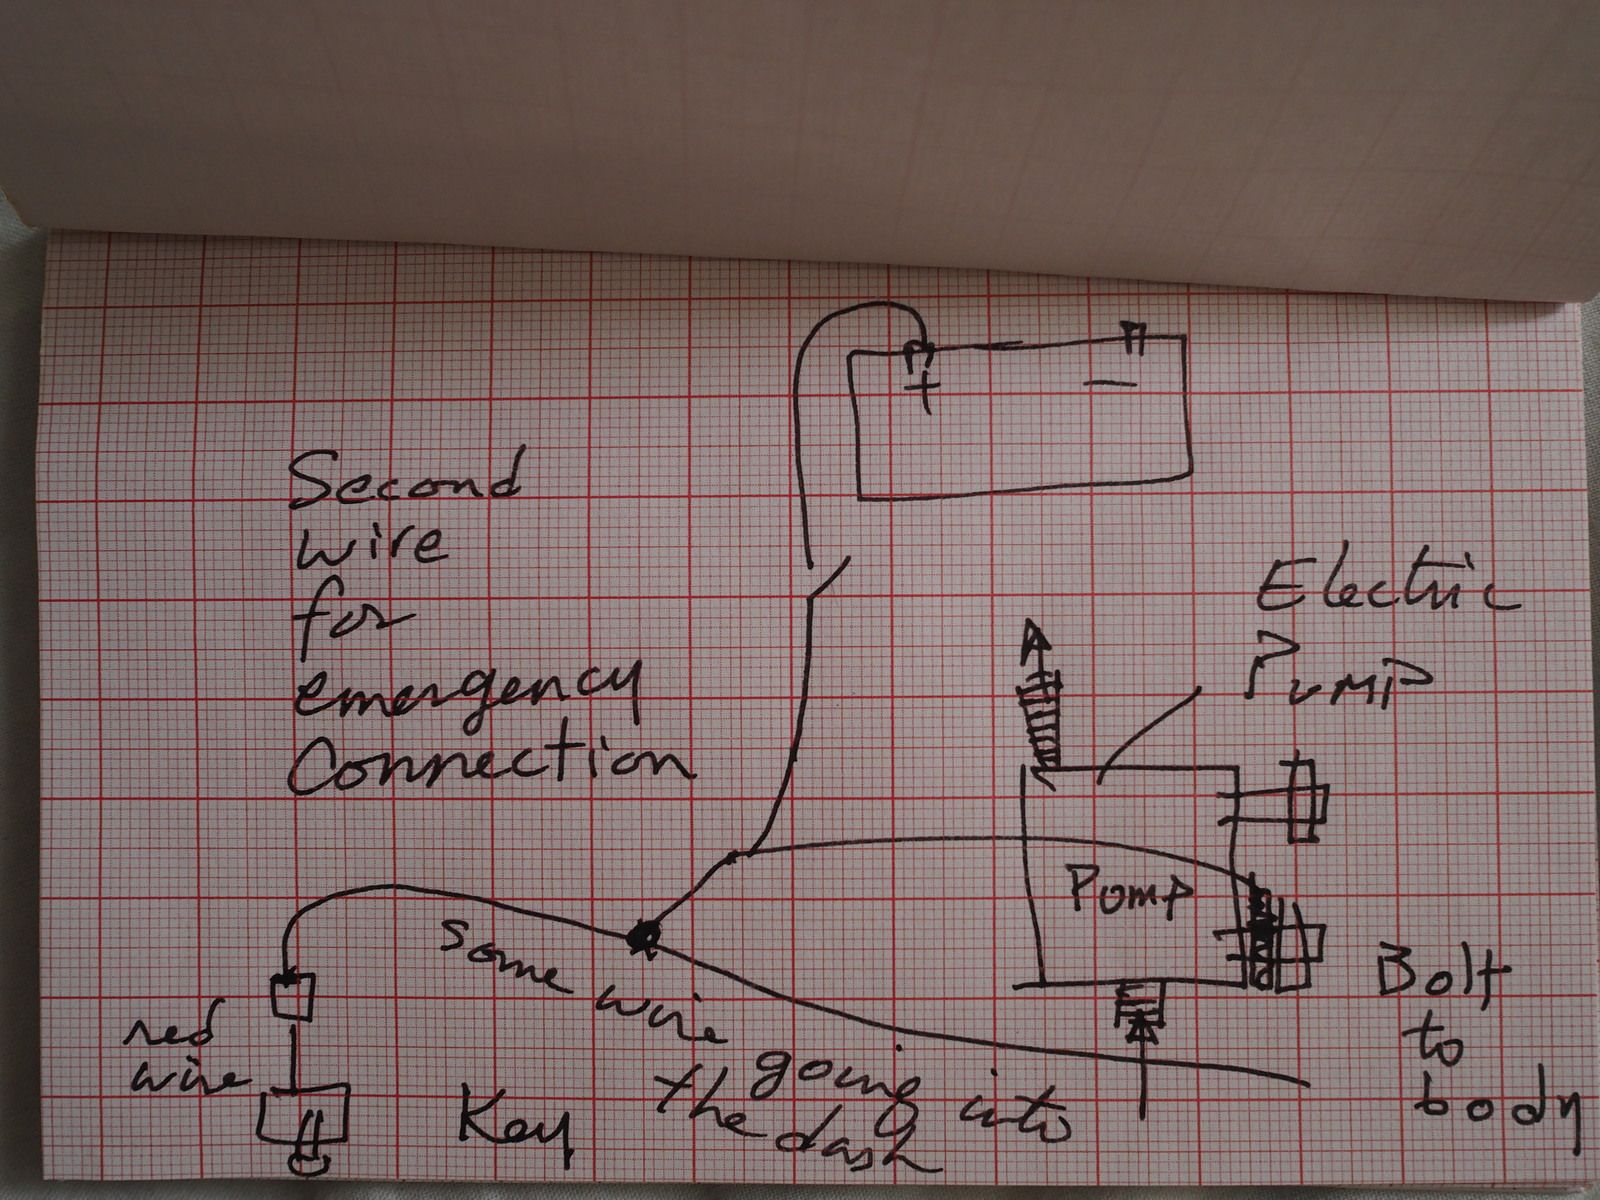 + −
Second
wire
for
emergency
Connection
Electric
Pump
Pump
Bolt
to
body
some wire going into
the dash
red
wire
Key